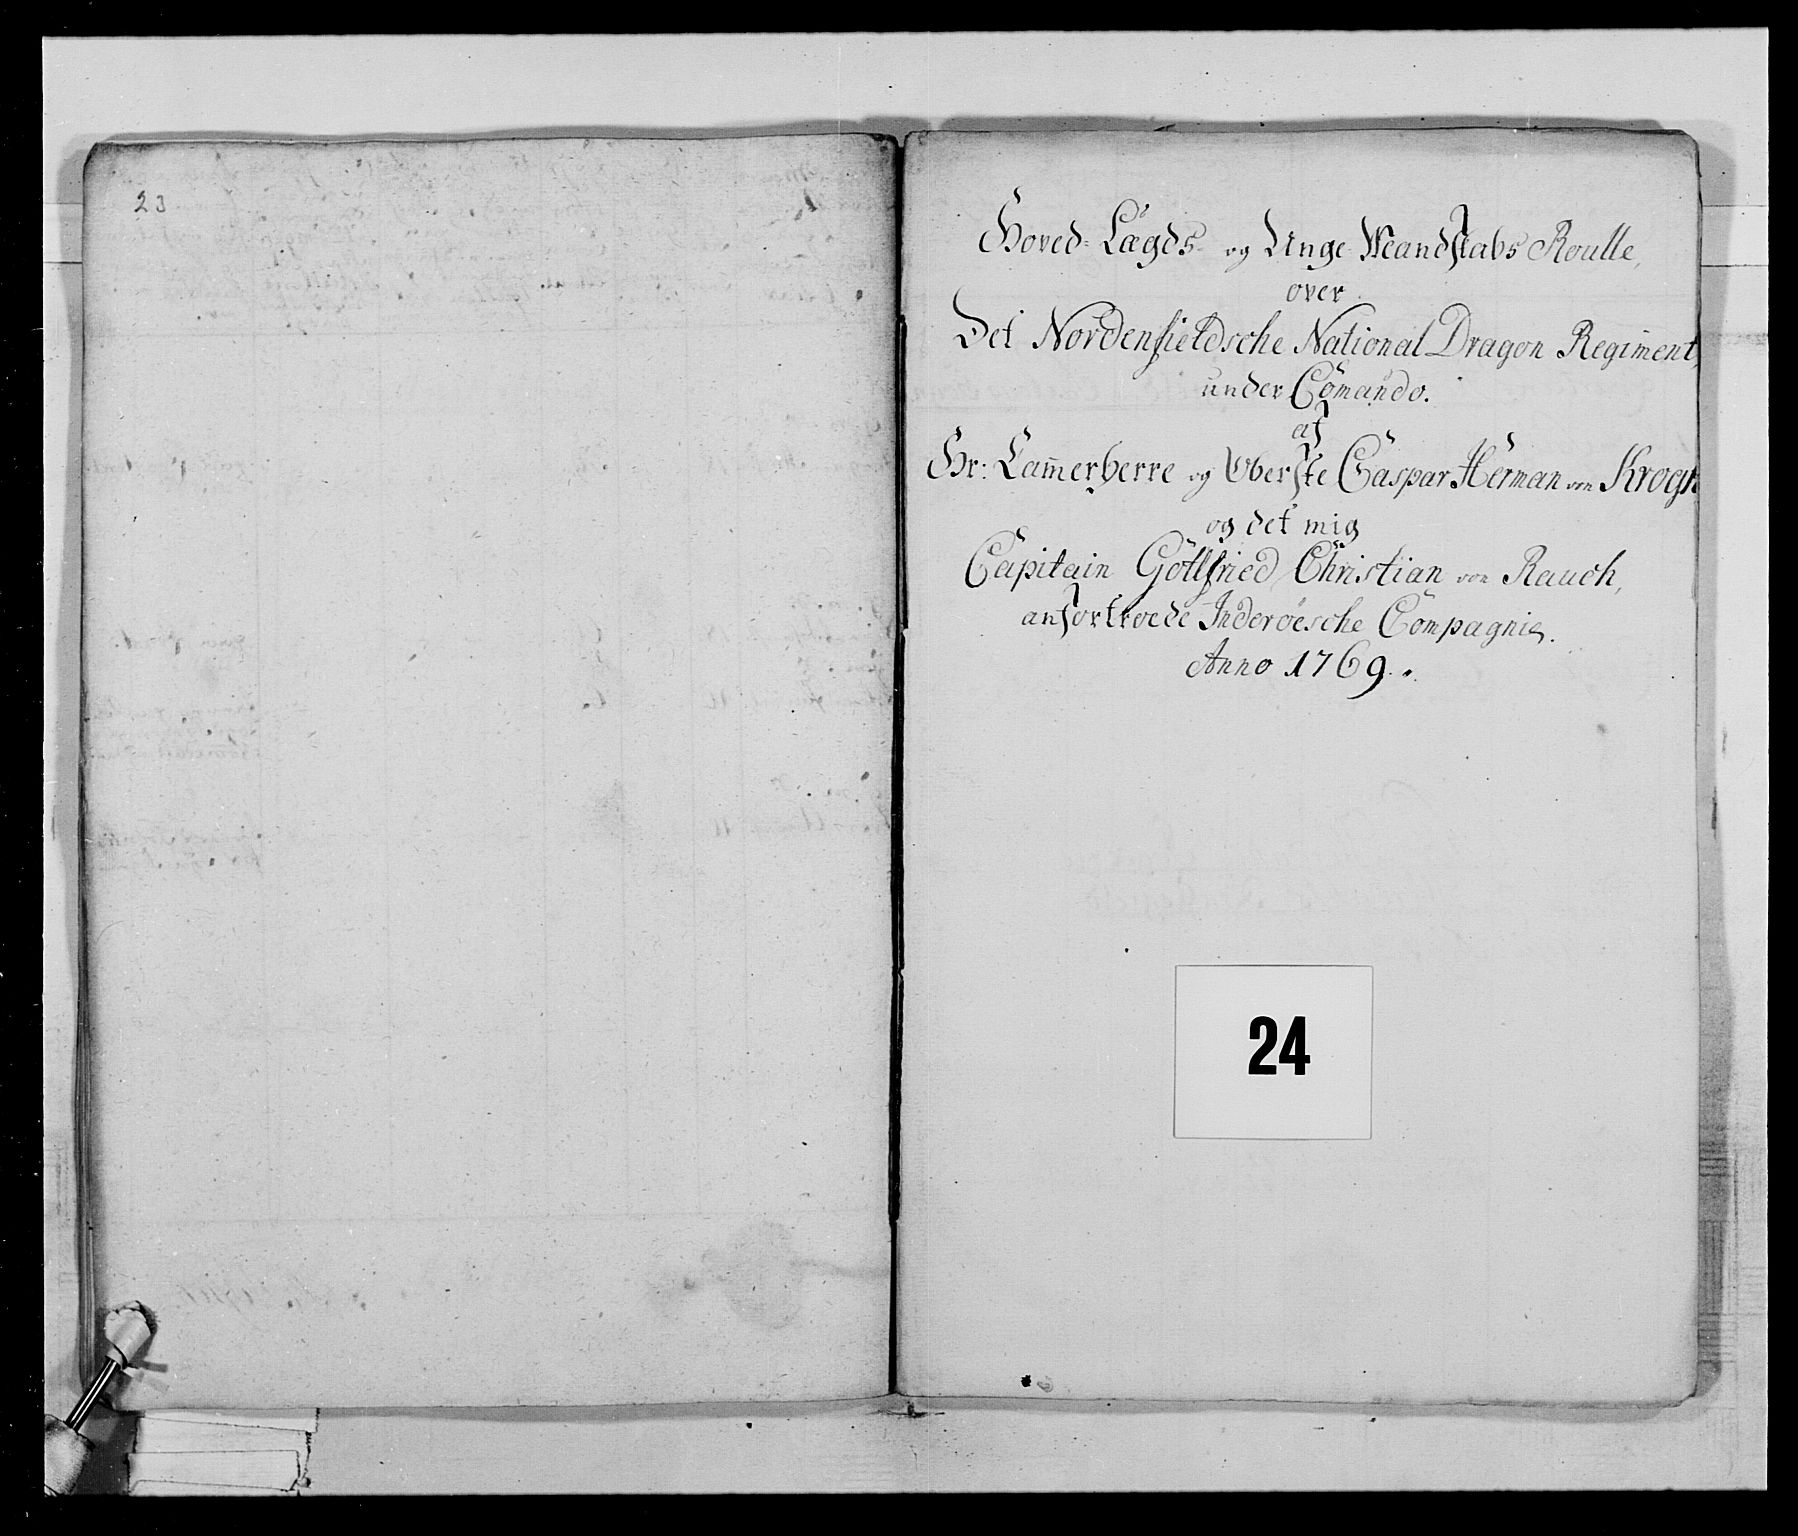 23
Hoved- Lægds- og Unge Mandskabs Roulle,
over
Det Nordenfieldsche National Dragon Regiment,
under Com̄ando.
af
Hr: Cam̄erherre og Oberste Caspar Herman von Krogh
og det mig
Capitain Gottfried Christian von Rauch,
anfortroede Inderöesche Compagnie.
Anno 1769.
24